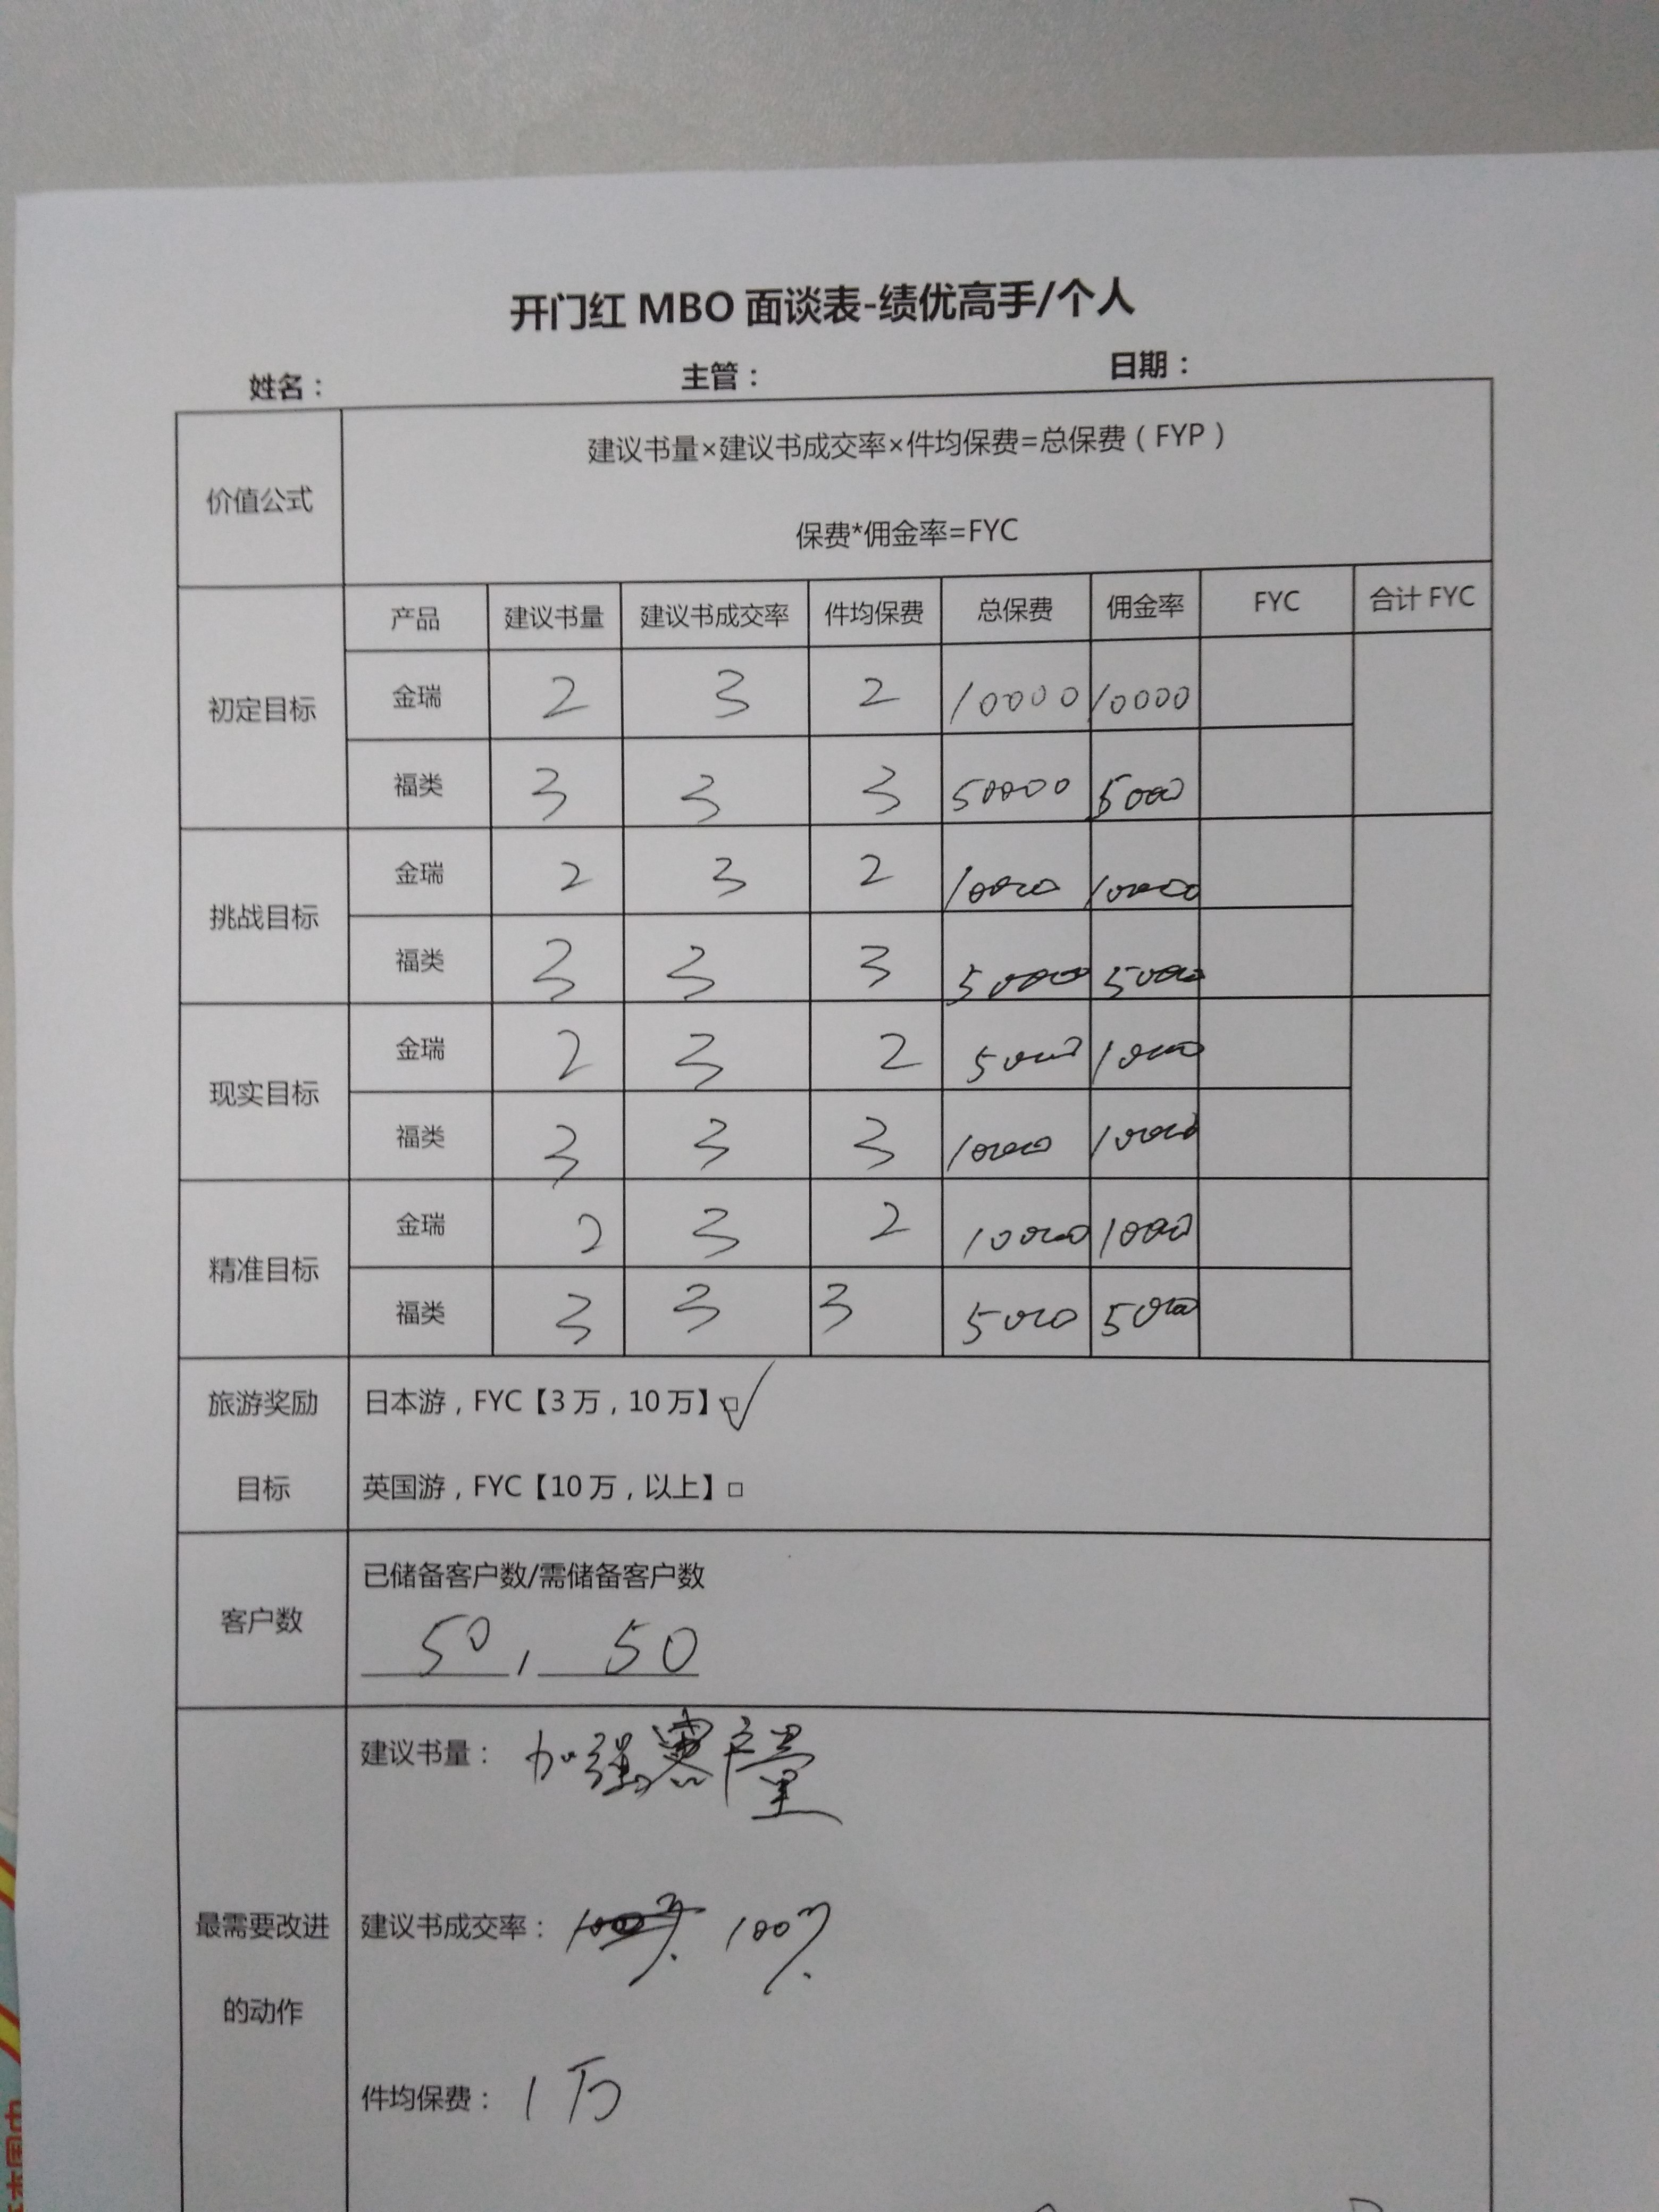 开门红 MBO 面谈表-绩优高手/个人
姓名： 主管： 日期：
价值公式
建议书量×建议书成交率×件均保费=总保费（FYP）
保费*佣金率=FYC
产品 建议书量 建议书成交率 件均保费 总保费 佣金率 FYC 合计 FYC
初定目标
金瑞 2 3 2 10000 10000
福类 3 3 3 50000 5000
挑战目标
金瑞 2 3 2 10000 10000
福类 3 3 3 50000 5000
现实目标
金瑞 2 3 2 5000 10000
福类 3 3 3 10000 10000
精准目标
金瑞 2 3 2 10000 10000
福类 3 3 3 5000 5000
旅游奖励
目标
日本游，FYC【3万，10万】□√
英国游，FYC【10万，以上】□
客户数
已储备客户数/需储备客户数
50, 50
最需要改进
的动作
建议书量： 加强客户量
建议书成交率： 100%
件均保费： 1万